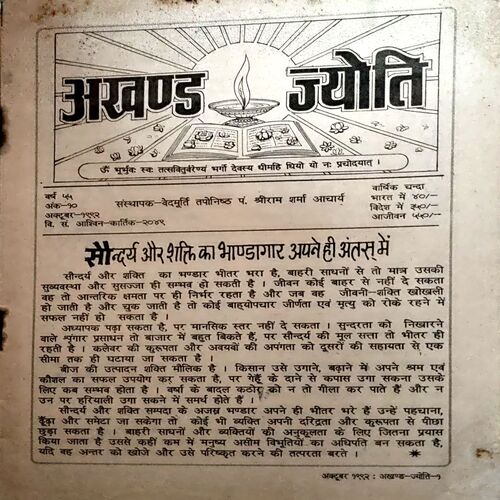 अखण्ड ज्योति
ॐ भूर्भुवः स्वः तत्सवितुर्वरेण्यं भर्गो देवस्य धीमहि धियो यो नः प्रचोदयात् ।
वर्ष ५५
अंक-१०
अक्टूबर-१९९२
वि. सं. आश्विन-कार्तिक-२०४९
संस्थापक-वेदमूर्ति तपोनिष्ठ पं. श्रीराम शर्मा आचार्य
वार्षिक चन्दा
भारत में ४०/-
विदेश में ३५०/-
आजीवन ५५०/-
सौन्दर्य और शक्ति का भाण्डागार अपने ही अंतस् में
सौन्दर्य और शक्ति का भण्डार भीतर भरा है, बाहरी साधनों से तो मात्र उसकी
सुव्यवस्था और सुसज्जा ही सम्भव हो सकती है । जीवन कोई बाहर से नहीं दे सकता
वह तो आन्तरिक क्षमता पर ही निर्भर रहता है और जब वह जीवनी-शक्ति खोखली
हो जाती है और चुक जाती है तो कोई बाहयोपचार जीर्णता एवं मृत्यु को रोके रहने में
सफल नहीं हो सकता है ।
अध्यापक पढ़ा सकता है, पर मानसिक स्तर नहीं दे सकता । सुन्दरता को निखारने
वाले शृंगार प्रसाधन तो बाजार में बहुत बिकते हैं, पर सौन्दर्य की मूल सत्ता तो भीतर ही
रहती है । कलेवर की कुरूपता और अवयवों की अपंगता को दूसरों की सहायता से एक
सीमा तक ही घटाया जा सकता है ।
बीज की उत्पादन शक्ति मौलिक है । किसान उसे उगाने, बढ़ाने में अपने श्रम एवं
कौशल का सफल उपयोग कर सकता है, पर गेहूँ के दाने से कपास उगा सकना उसके
लिए कब सम्भव होता है । वर्षा के बादल कठोर को न तो गीला कर पाते हैं और न
उन पर हरियाली उगा सकने में समर्थ होते हैं ।
सौन्दर्य और शक्ति सम्पदा के अजस्र भण्डार अपने ही भीतर भरे हैं उन्हें पहचाना,
ढूँढ़ा और समेटा जा सकेगा तो कोई भी व्यक्ति अपनी दरिद्रता और कुरूपता से पीछा
छुड़ा सकता है । बाहरी साधनों और व्यक्तियों की अनुकूलता के लिए जितना प्रयास
किया जाता है उससे कहीं कम में मनुष्य असीम विभूतियों का अधिपति बन सकता है,
यदि वह अन्तर को खोजे और उसे परिष्कृत करने की तत्परता बरते । *
अक्टूबर १९९२ : अखण्ड-ज्योति-१